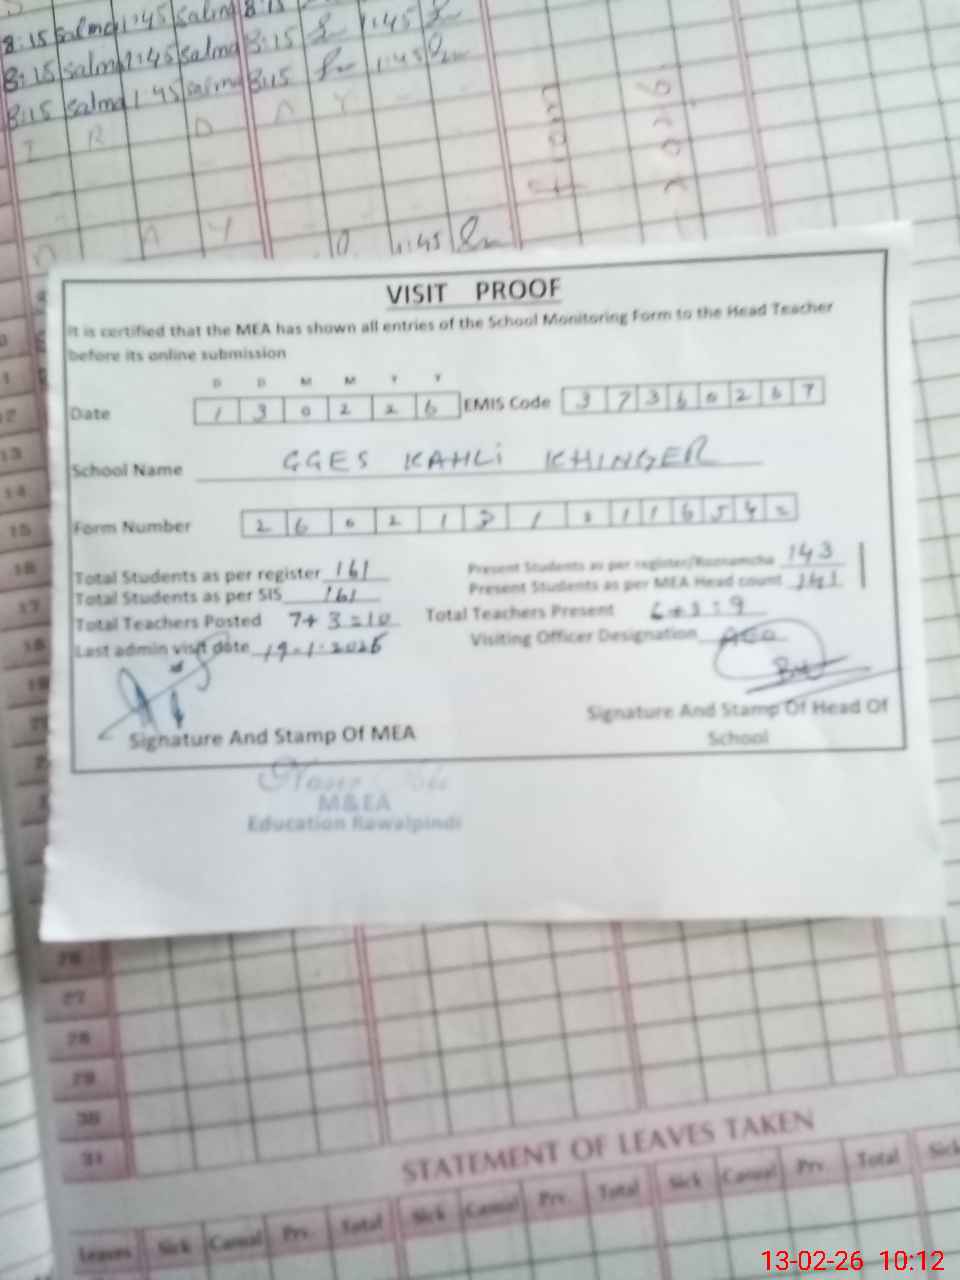 8:15 Salma 1:45 Salma 8:15
8:15 Salma 1:45 Salma 8:15 1:45
8:15 Salma 1:45 Salma 8:15 1:45
D A Y
1:45
VISIT PROOF
It is certified that the MEA has shown all entries of the School Monitoring Form to the Head Teacher
before its online submission
D D M M Y Y
Date 1 3 0 2 2 6 EMIS Code 3 7 3 6 0 2 6 7
School Name GGES KAHLI KHINGER
Form Number
Total Students as per register 161
Present Students as per register/Roznamcha 143
Total Students as per SIS 161
Present Students as per MEA Head count 141
Total Teachers Posted 7+3=10
Total Teachers Present 6+3=9
Last admin visit date 19-1-2026
Visiting Officer Designation AEO
Signature And Stamp Of MEA
Signature And Stamp Of Head Of
School
M&EA
Education Rawalpindi
13
14
15
16
17
18
19
26
27
28
29
30
31
STATEMENT OF LEAVES TAKEN
Leaves Sick Casual Prv. Total Sick Casual Prv. Total Sick Casual Prv. Total Sick
13-02-26 10:12